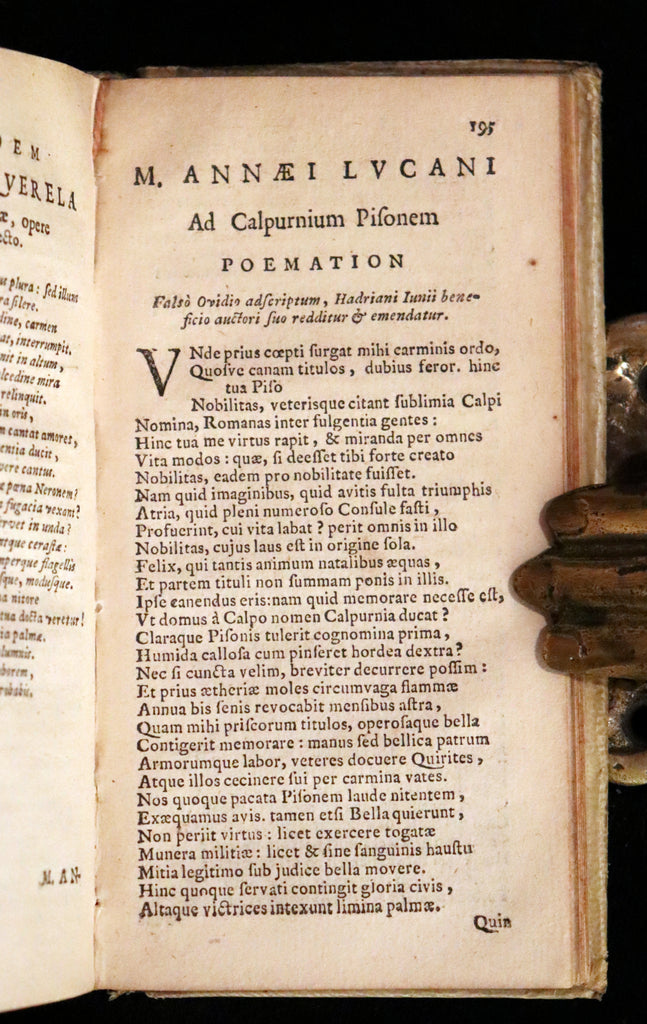 OEM
VERELA
æ, opere
cto.
plura : sed illum
ra silere.
dine, carmen
at, interrumpit.
nit in altum,
lcedine mira
relinquit.
in oris,
n cantat amores,
entia ducit,
vere cantus.
pœna Neronem?
fugacia vexant?
rvet in unda?
tque cerastæ:
mperque flagellis
sque, modusque.
a nitore
na docta veretur!
ia palmæ.
lumnis.
borem,
M. AN-
195
M. ANNÆI LVCANI
Ad Calpurnium Piſonem
POEMATION
Falsò Ovidio adſcriptum, Hadriani Iunii bene-
ficio auctori ſuo redditur & emendatur.
VNde prius cœpti ſurgat mihi carminis ordo,
Quoſve canam titulos, dubius feror. hinc
tua Piſo
Nobilitas, veterisque citant ſublimia Calpi
Nomina, Romanas inter fulgentia gentes :
Hinc tua me virtus rapit, & miranda per omnes
Vita modos : quæ, ſi deeſſet tibi forte creato
Nobilitas, eadem pro nobilitate fuiſſet.
Nam quid imaginibus, quid avitis fulta triumphis
Atria, quid pleni numeroſo Conſule faſti,
Profuerint, cui vita labat ? perit omnis in illo
Nobilitas, cujus laus eſt in origine ſola.
Felix, qui tantis animum natalibus æquas,
Et partem tituli non ſummam ponis in illis.
Ipſe canendus eris:nam quid memorare neceſſe eſt,
Vt domus à Calpo nomen Calpurnia ducat ?
Claraque Piſonis tulerit cognomina prima,
Humida calloſa cum pinſeret hordea dextra ?
Nec ſi cuncta velim, breviter decurrere poſſim :
Et prius ætheriæ moles circumvaga flammæ
Annua bis ſenis revocabit menſibus aſtra,
Quam mihi priſcorum titulos, operoſaque bella
Contigerit memorare : manus ſed bellica patrum
Armorumque labor, veteres docuere Quirites,
Atque illos cecinere ſui per carmina vates.
Nos quoque pacata Piſonem laude nitentem,
Exæquamus avis. tamen etſi Bella quierunt,
Non periit virtus : licet exercere togatæ
Munera militiæ : licet & ſine ſanguinis hauſtu
Mitia legitimo ſub judice bella movere.
Hinc quoque ſervati contingit gloria civis,
Altaque victrices intexunt limina palmæ.
Quin